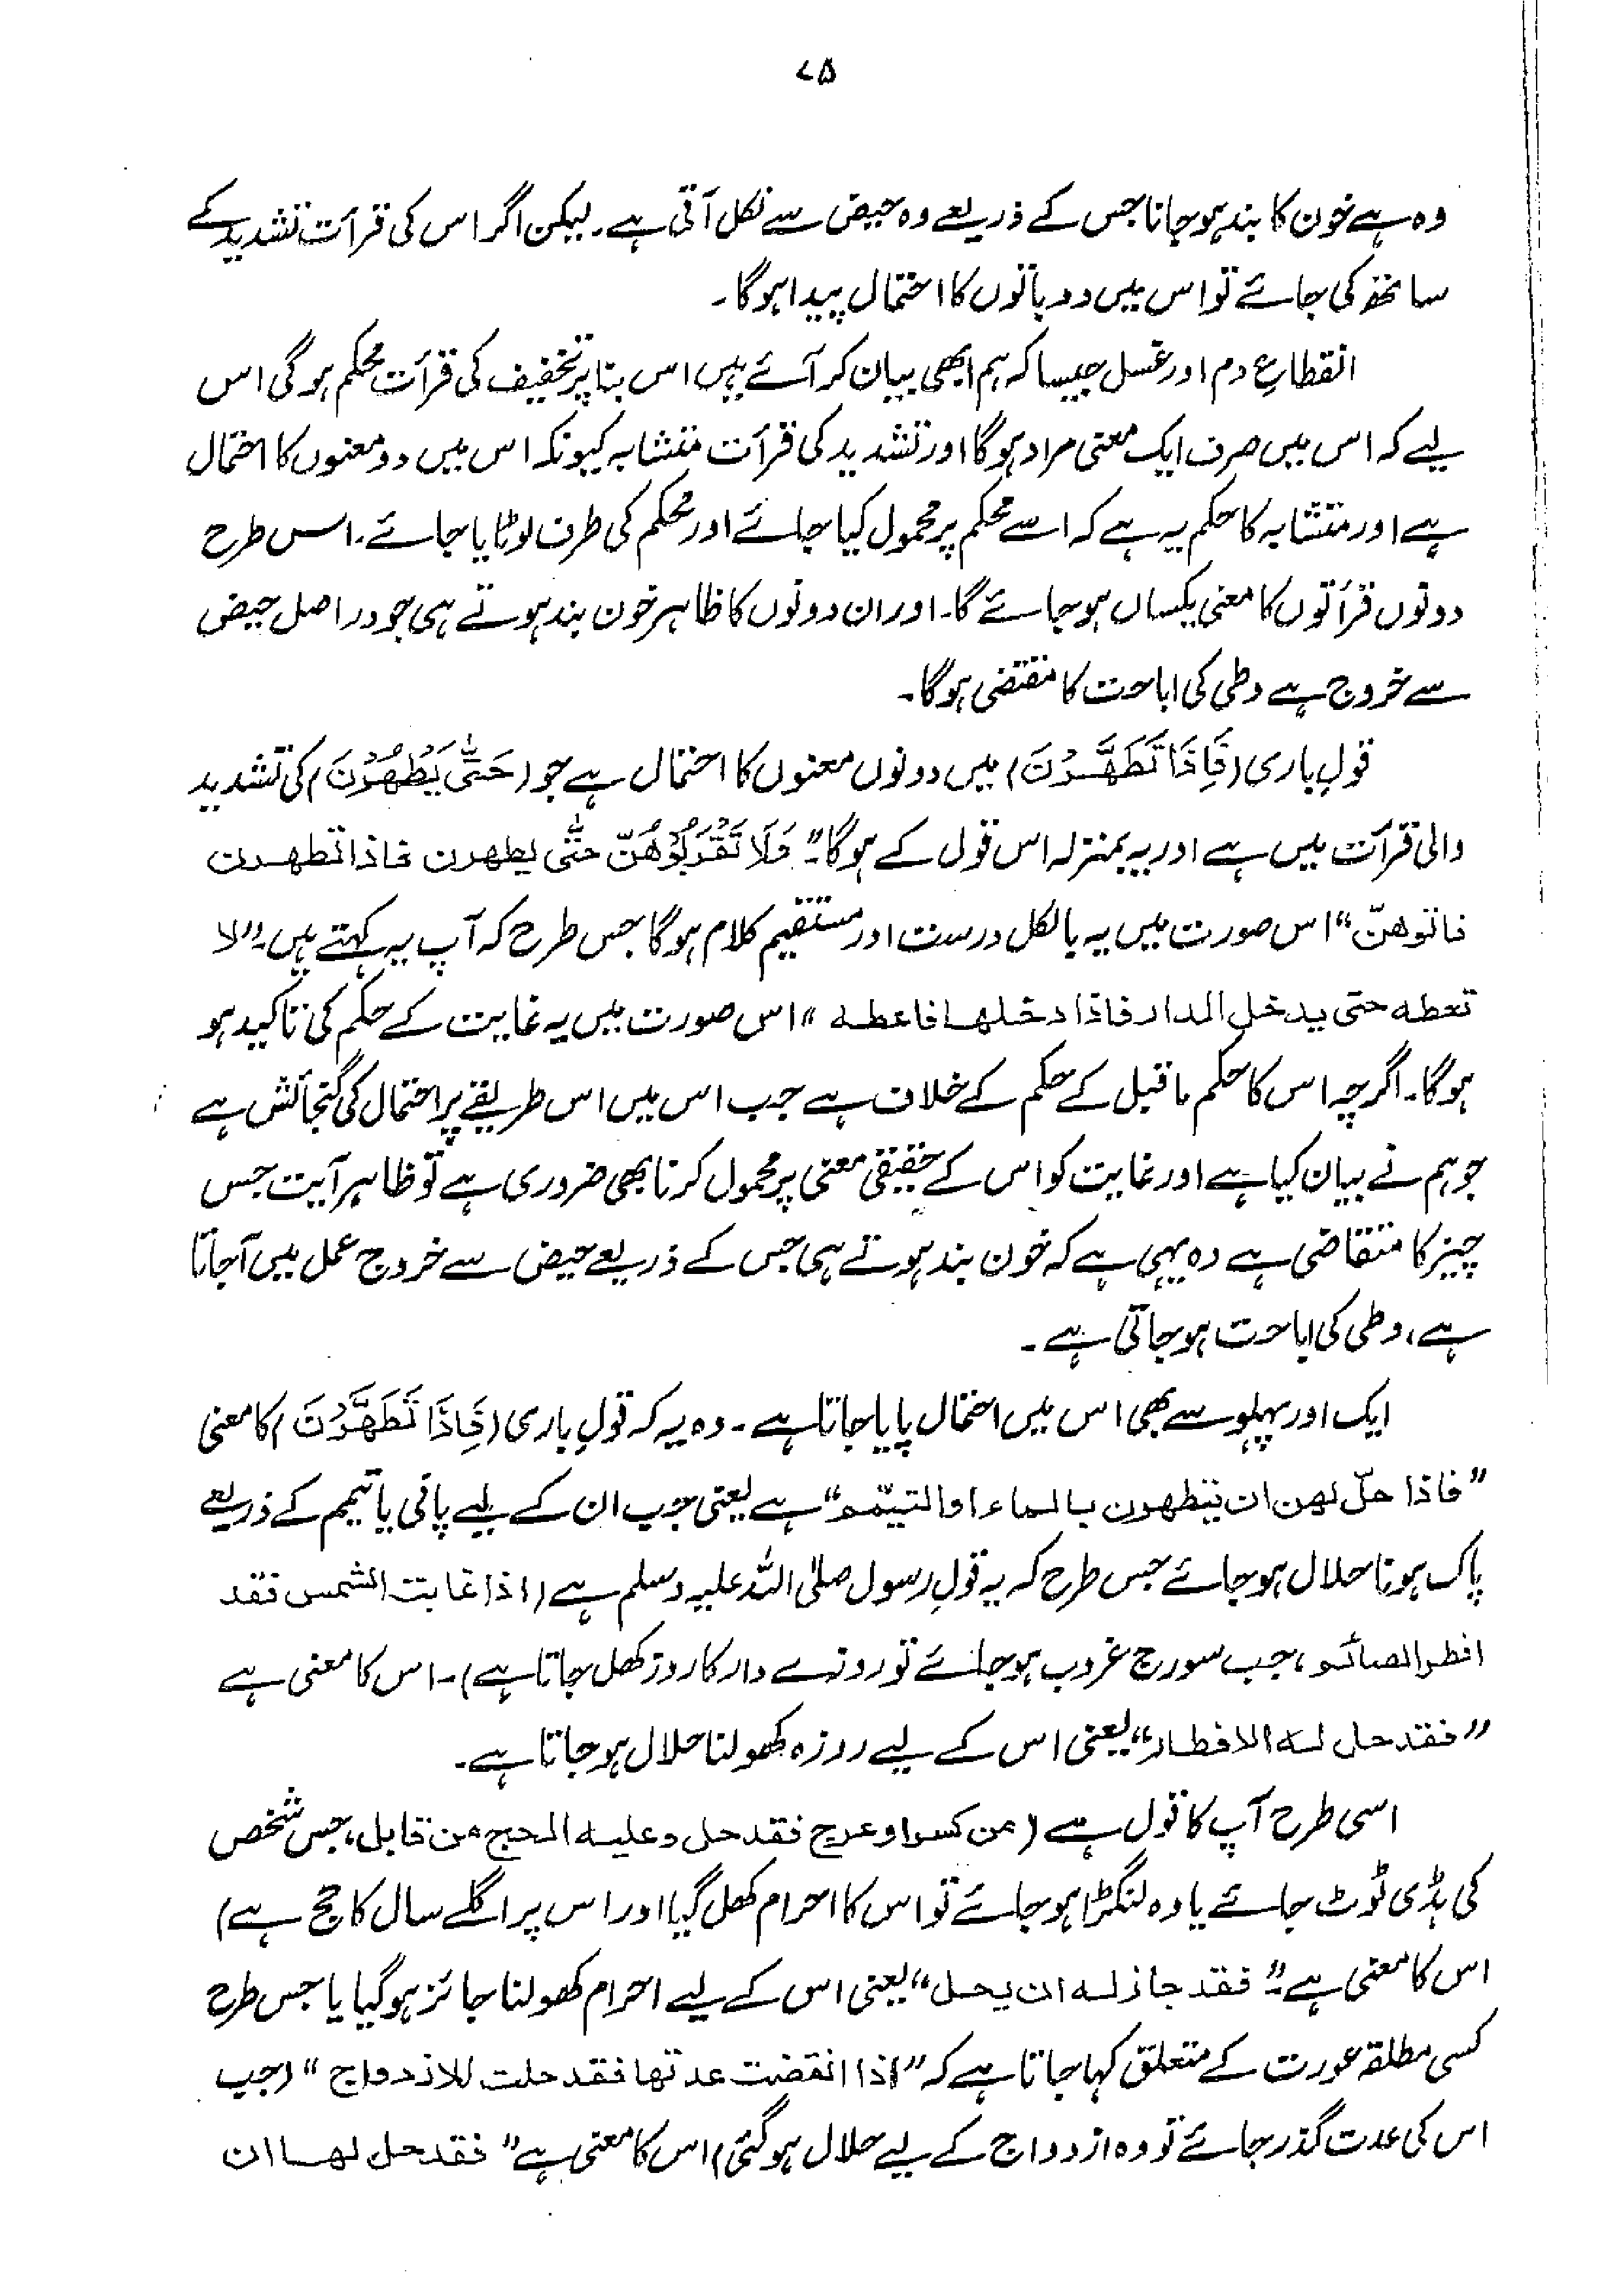 ۷۵
وہ ہے خون کا بند ہو جانا جس کے ذریعے وہ حیض سے نکل آتی ہے۔ لیکن اگر اس کی قرأت تشدید کے
ساتھ کی جائے تو اس میں دو باتوں کا احتمال پیدا ہوگا۔
انقطاعِ دم اور غسل جیسا کہ ہم ابھی بیان کر آئے ہیں اس بنا پر تخفیف کی قرأت محکم ہوگی اس
لیے کہ اس میں صرف ایک معنی مراد ہوگا اور تشدید کی قرأت متشابہ کیونکہ اس میں دو معنوں کا احتمال
ہے اور متشابہ کا حکم یہ ہے کہ اسے محکم پر محمول کیا جائے اور محکم کی طرف لوٹایا جائے۔ اس طرح
دونوں قرأتوں کا معنی یکساں ہو جائے گا۔ اور ان دونوں کا ظاہر خون بند ہوتے ہی جو دراصل حیض
سے خروج ہے وطی کی اباحت کا مقتضی ہوگا۔
قولِ باری (فَاِذَا تَطَهَّرْنَ) میں دونوں معنوں کا احتمال ہے جو (حَتّٰی یَطْهُرْنَ) کی تشدید
والی قرأت میں ہے اور یہ بمنزلہ اس قول کے ہوگا۔ "وَلَا تَقْرَبُوْهُنَّ حَتّٰی یطهرن فاذا تطهرن
فاتوهنّ" اس صورت میں یہ بالکل درست اور مستقیم کلام ہوگا جس طرح کہ آپ یہ کہتے ہیں۔ "لا
تعطه حتی یدخل الدار فاذا دخلها فاعطه" اس صورت میں یہ غایت کے حکم کی تاکید ہو
ہوگا۔ اگرچہ اس کا حکم ماقبل کے حکم کے خلاف ہے جب اس میں اس طریقے پر احتمال کی گنجائش ہے
جو ہم نے بیان کیا ہے اور غایت کو اس کے حقیقی معنی پر محمول کرنا بھی ضروری ہے تو ظاہر آیت جس
چیز کا متقاضی ہے وہ یہی ہے کہ خون بند ہوتے ہی جس کے ذریعے حیض سے خروج عمل میں آجاتا
ہے، وطی کی اباحت ہو جاتی ہے۔
ایک اور پہلو سے بھی اس میں احتمال پایا جاتا ہے۔ وہ یہ کہ قولِ باری (فَاِذَا تَطَهَّرْنَ) کا معنی
"فاذا حلّ لهن ان یتطهرن بالماء او التیمّم" ہے یعنی جب ان کے لیے پانی یا تیمم کے ذریعے
پاک ہونا حلال ہو جائے جس طرح کہ یہ قولِ رسول صلی اللہ علیہ وسلم ہے (اذا غابت الشمس فقد
افطر الصائم، جب سورج غروب ہو جائے تو روزے دار کا روزہ کھل جاتا ہے)۔ اس کا معنی ہے
"فقد حل له الافطار" یعنی اس کے لیے روزہ کھولنا حلال ہو جاتا ہے۔
اسی طرح آپ کا قول ہے (من کسر او عرج فقد حل وعلیه الحج من قابل، جس شخص
کی ہڈی ٹوٹ جائے یا وہ لنگڑا ہو جائے تو اس کا احرام کھل گیا اور اس پر اگلے سال کا حج ہے)
اس کا معنی ہے "فقد جاز له ان یحل" یعنی اس کے لیے احرام کھولنا جائز ہو گیا یا جس طرح
کسی مطلقہ عورت کے متعلق کہا جاتا ہے کہ "اذا انقضت عدتها فقد حلت للازدواج" (جب
اس کی عدت گذر جائے تو وہ ازدواج کے لیے حلال ہو گئی) اس کا معنی ہے "فقد حل لها ان